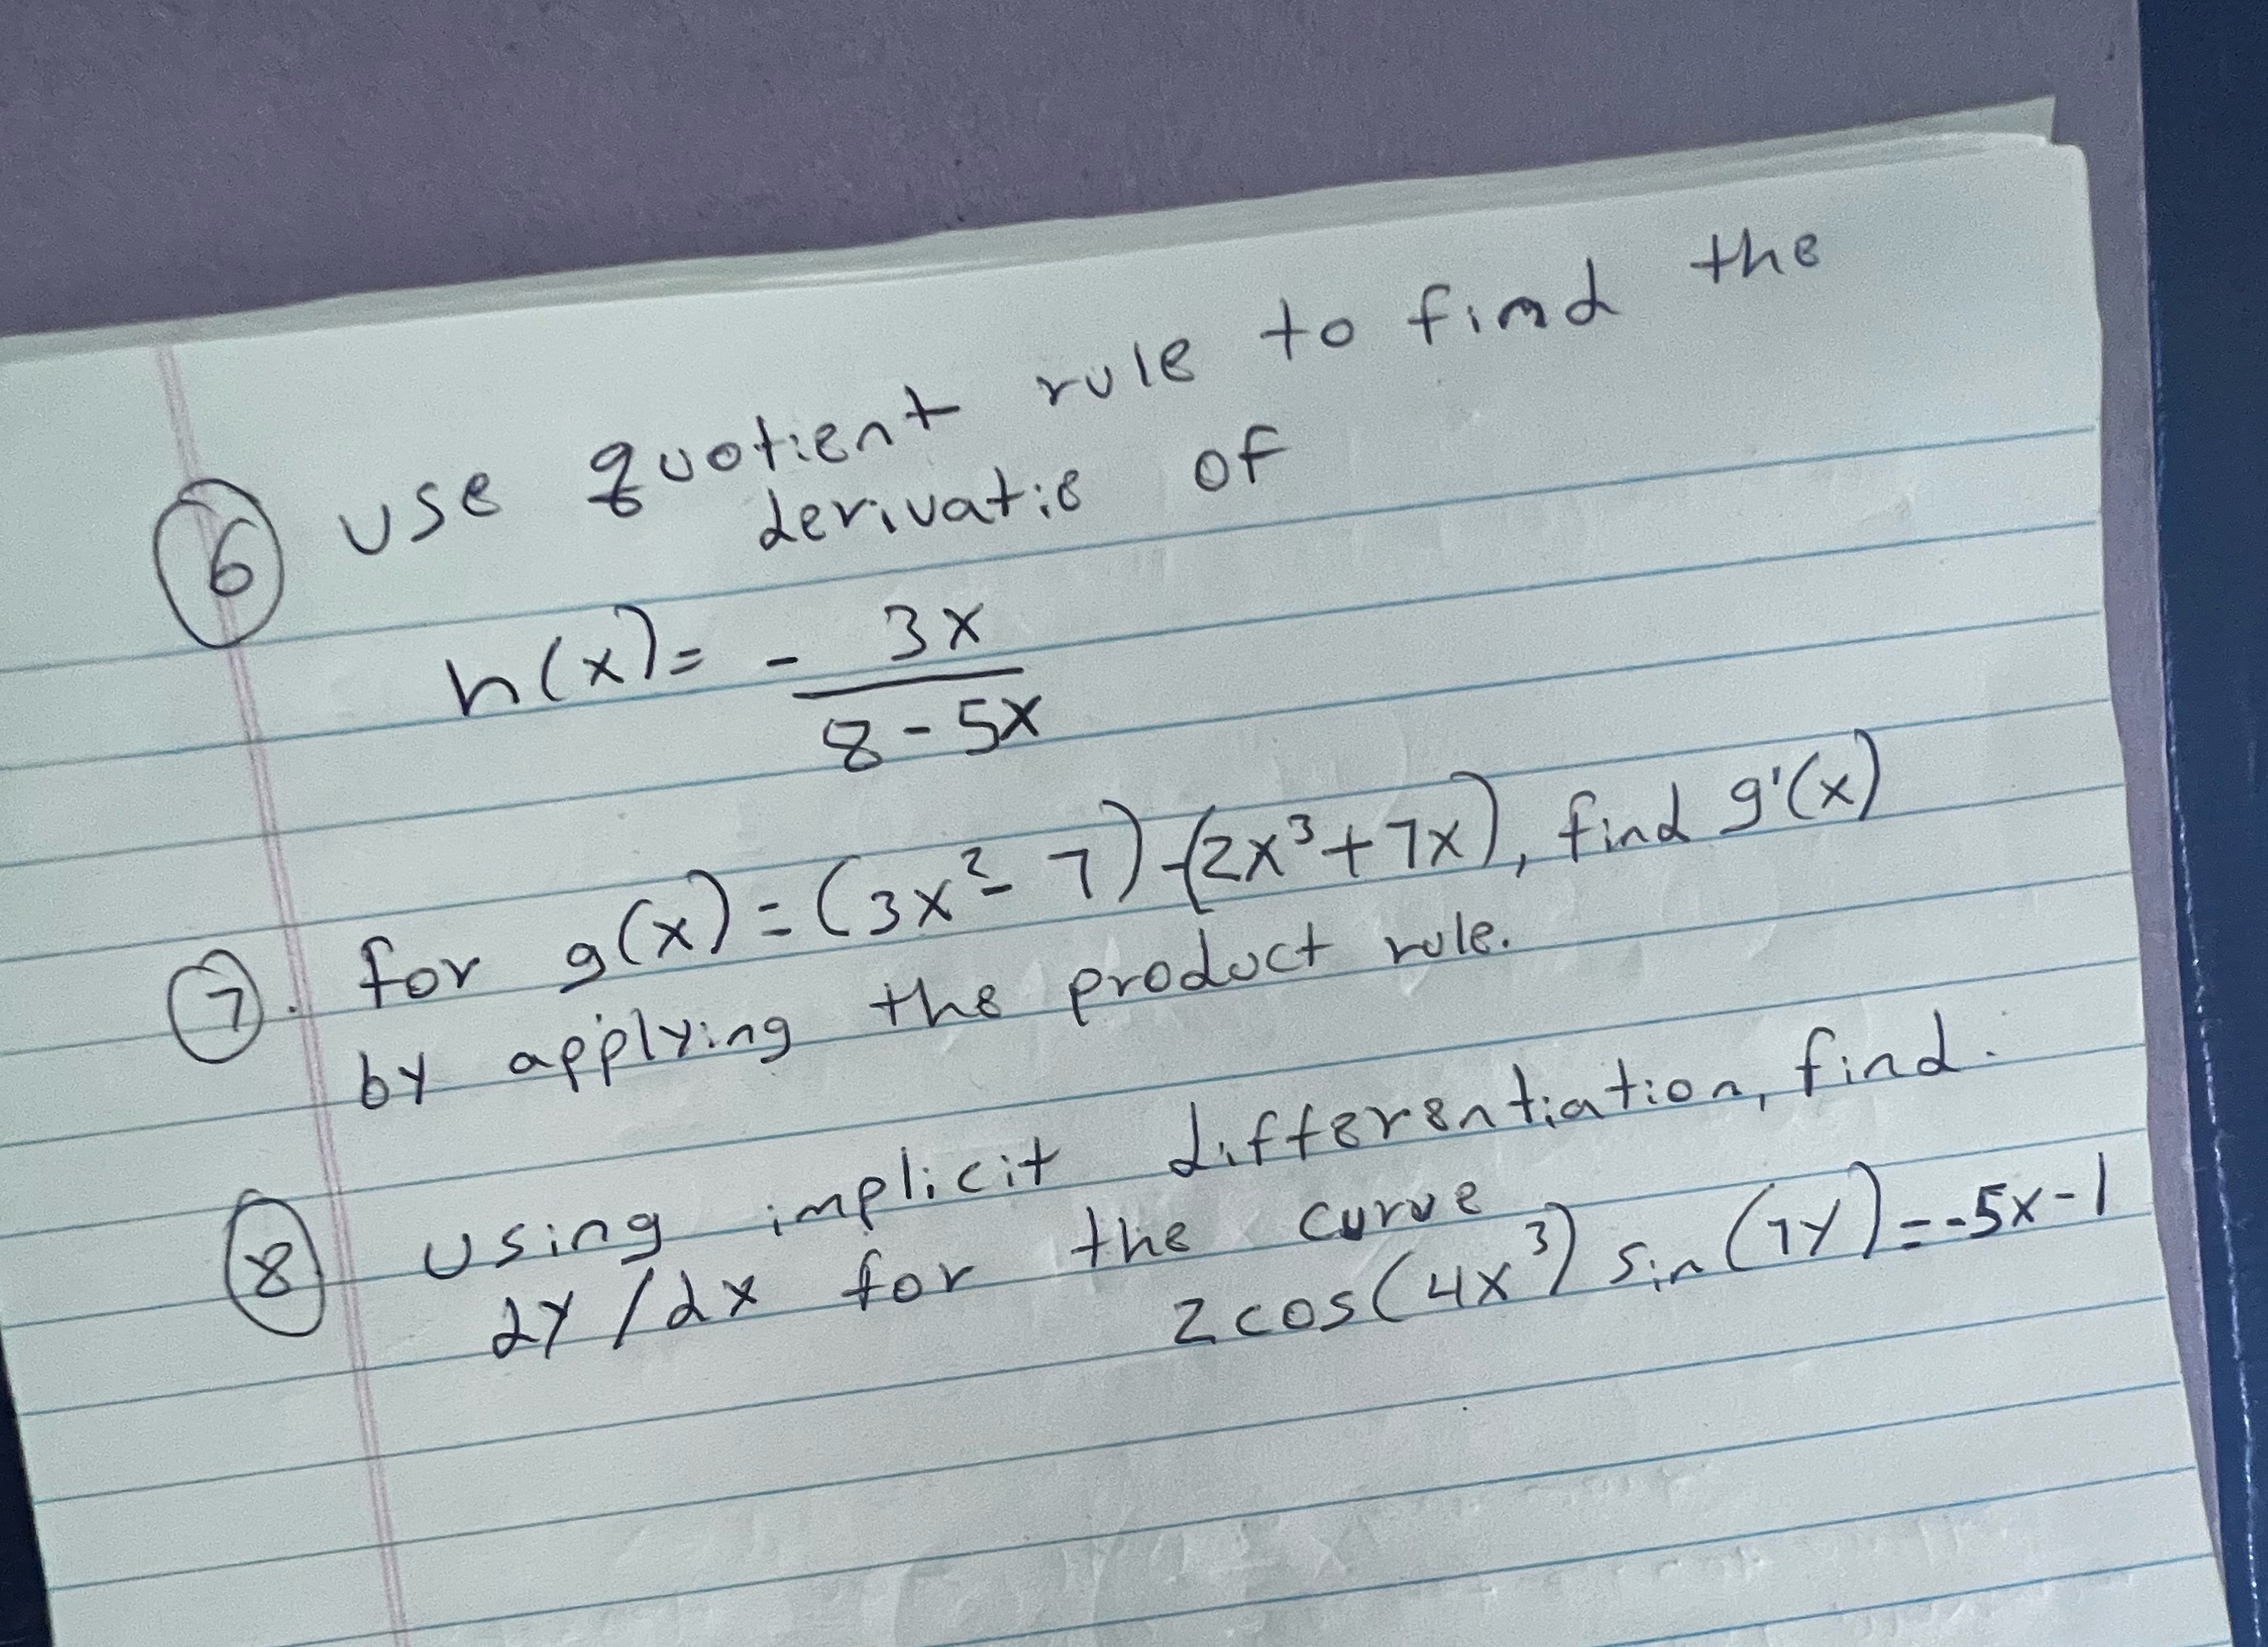 6 Use quotient rule to find the
derivatie of
h(x) = - 3x
8 - 5x
7. for g(x) = (3x² - 7) - (2x³ + 7x), find g'(x)
by applying the product rule.
8 Using implicit differentiation, find.
dy/dx for the curve
2cos(4x³) sin(7y) = -5x-1